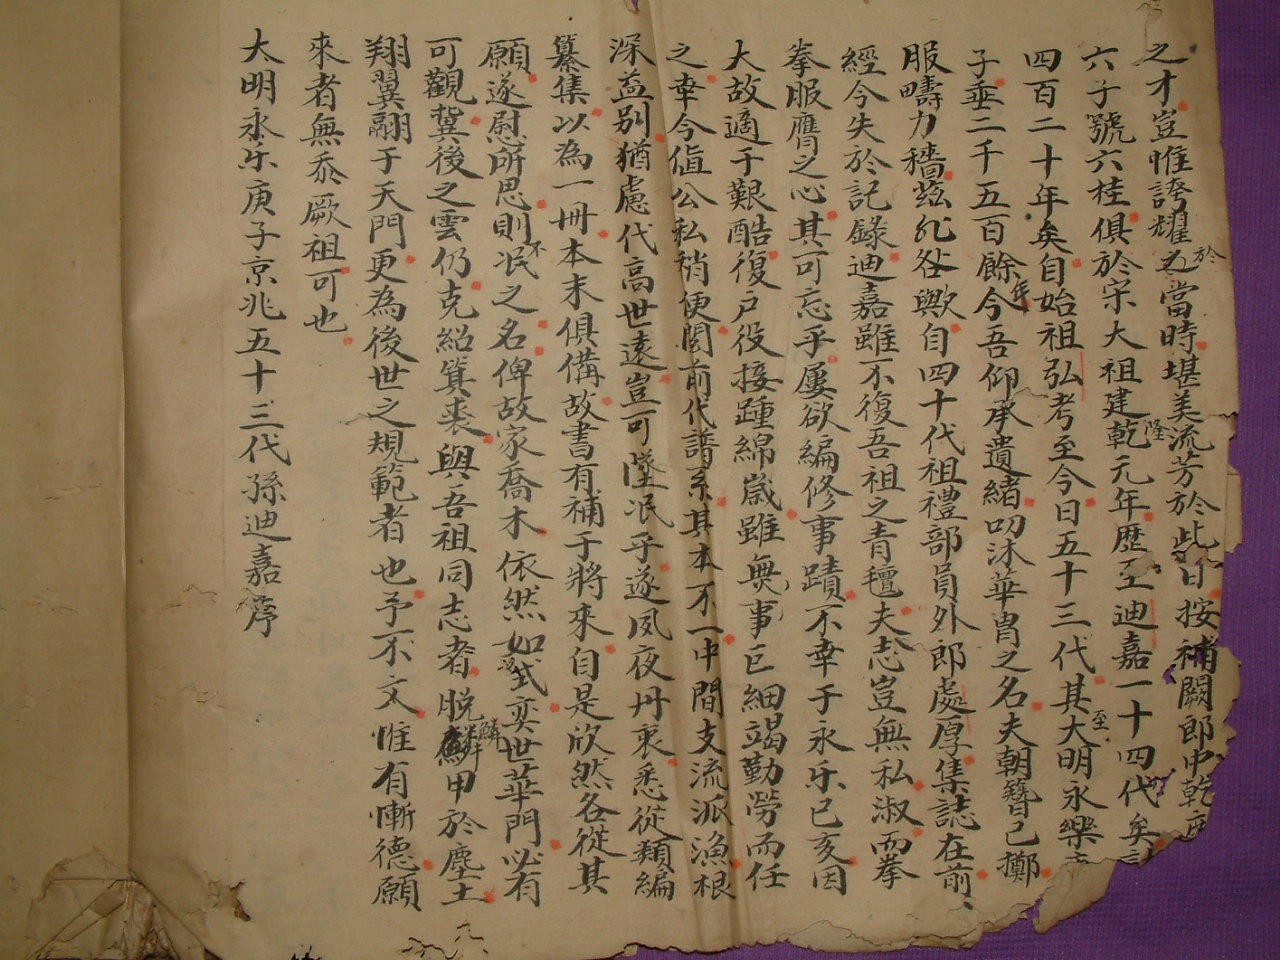 之才豈惟誇耀於當時堪美流芳於此日按補闕郎中乾
六子號六桂俱於宋大祖建隆乾元年歷至迪嘉一十四代矣
四百二十年矣自始祖弘考至今日五十三代其大明至永樂
子垂二千五百餘年今吾仰承遺緒叨沐華冑之名夫朝簪已擲
服疇力穡茲非咎歟自四十代祖禮部員外郎處厚集誌在前
經今失於記錄迪嘉雖不復吾祖之青氊夫志豈無私淑而拳
拳服膺之心其可忘乎屢欲編修事蹟不幸于永乐己亥因
大故適于艱酷復戶役接踵綿歲雖無事巨細竭勤勞而任
之幸今值公私稍便閱前代譜系其本不一中間支流派漁根
深益别猶慮代高世遠豈可墜泯乎遂夙夜丹衷悉從類編
纂集以為一冊本末俱備故書有補于將來自是欣然各從其
願遂慰所思則不泯之名俾故家喬木依然如式奕世華門必有
可觀冀後之雲仍克紹箕裘與吾祖同志者脫鱗甲於塵土
翔翼翮于天門更為後世之規範者也予不文惟有慚德願
來者無忝厥祖可也
大明永乐庚子京兆五十三代孫迪嘉序